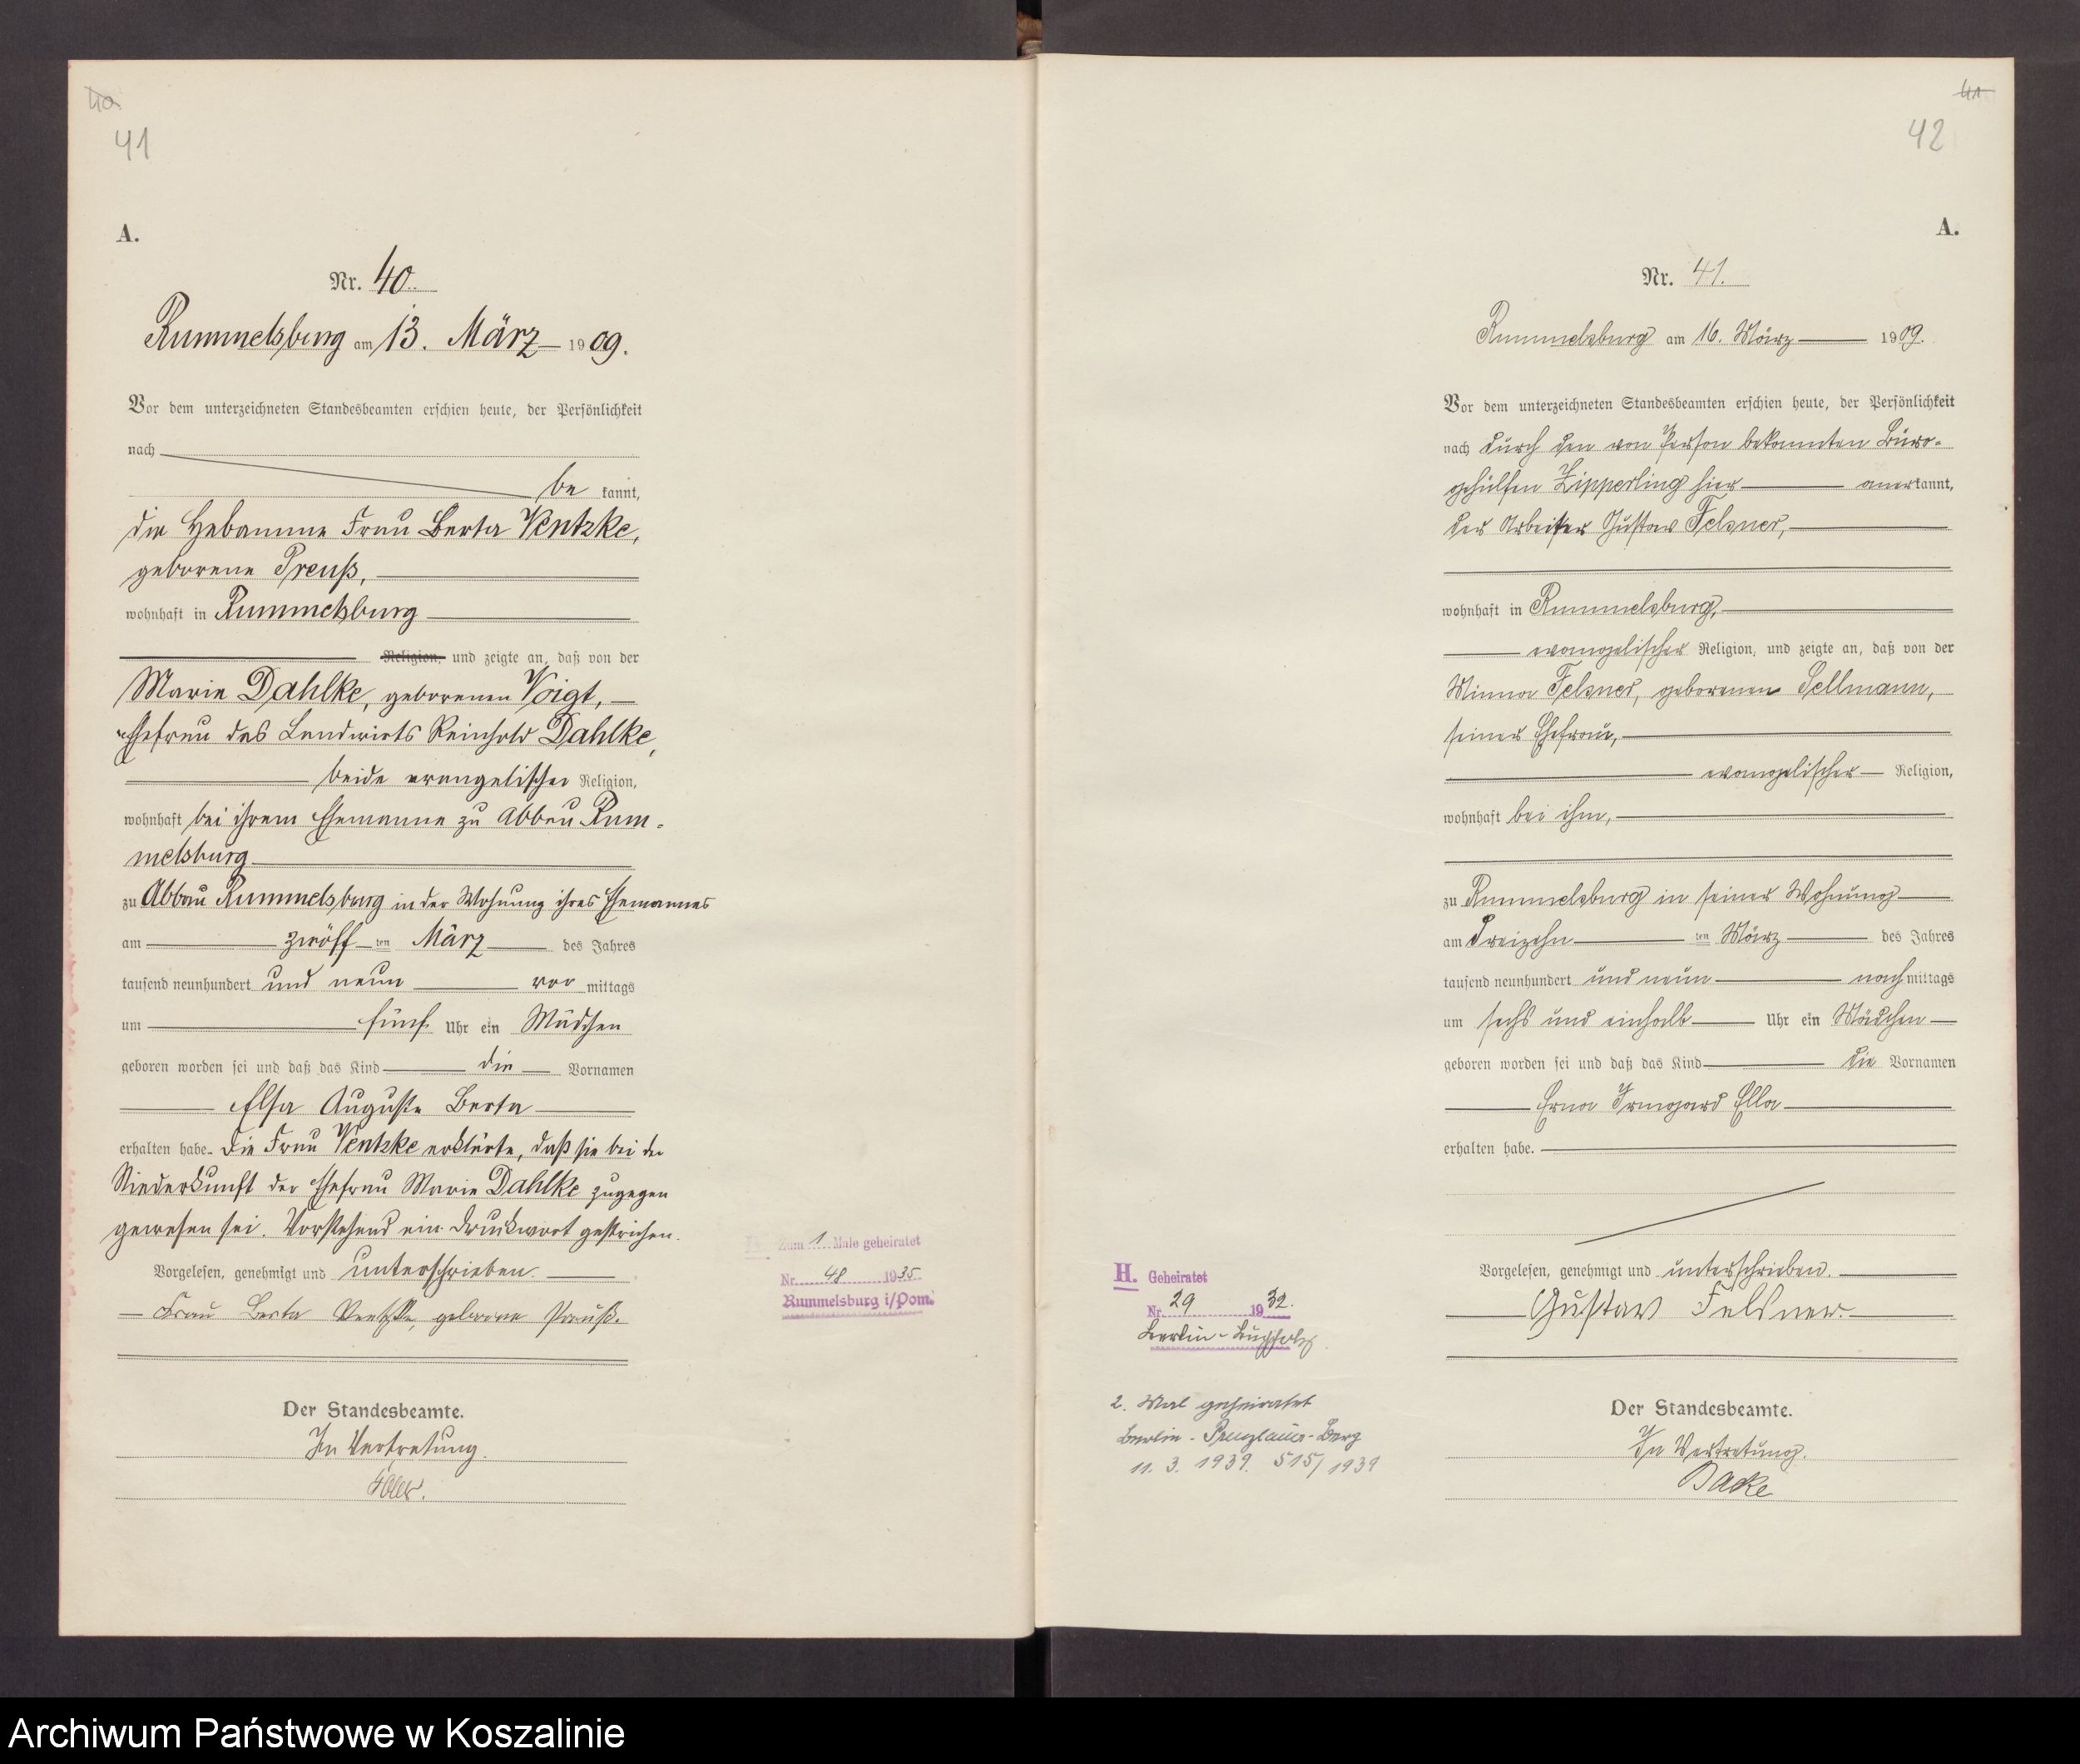 40
41
A.
Nr. 40.
Rummelsburg am 13. März 1909.
Vor dem unterzeichneten Standesbeamten erschien heute, der Persönlichkeit
nach
be kannt,
die Hebamme Frau Berta Ventzke,
geborene Preuß,
wohnhaft in Rummelsburg
Religion, und zeigte an, daß von der
Marie Dahlke, geborenen Voigt,
Ehefrau des Landwirts Reinhold Dahlke,
beide evangelischer Religion,
wohnhaft bei ihrem Ehemanne zu Abbau Rum-
melsburg
zu Abbau Rummelsburg in der Wohnung ihres Ehemannes
am zwölf ten März des Jahres
tausend neunhundert und neun vor mittags
um fünf Uhr ein Mädchen
geboren worden sei und daß das Kind die Vornamen
Elsa Auguste Berta
erhalten habe. Die Frau Ventzke erklärte, daß sie bei der
Niederkunft der Ehefrau Marie Dahlke zugegen
gewesen sei. Vorstehend ein Druckwort gestrichen.
Vorgelesen, genehmigt und unterschrieben.
Frau Berta Ventzke, geborene Preuß.
Der Standesbeamte.
In Vertretung.
H. Zum 1 Male geheiratet
Nr. 48 1935
Rummelsburg i/Pom.
41
42
A.
Nr. 41.
Rummelsburg am 16. März 1909.
Vor dem unterzeichneten Standesbeamten erschien heute, der Persönlichkeit
nach durch den von Person bekannten Büro-
gehülfen Zipperling hier anerkannt,
der Arbeiter Gustav Felsner,
wohnhaft in Rummelsburg,
evangelischer Religion, und zeigte an, daß von der
Minna Felsner, geborenen Sellmann,
seiner Ehefrau,
evangelischer Religion,
wohnhaft bei ihm,
zu Rummelsburg in seiner Wohnung
am dreizehn ten März des Jahres
tausend neunhundert und neun nach mittags
um sechs und einhalb Uhr ein Mädchen
geboren worden sei und daß das Kind die Vornamen
Erna Irmgard Ella
erhalten habe.
Vorgelesen, genehmigt und unterschrieben.
Gustav Felsner.
Der Standesbeamte.
In Vertretung.
Backe
H. Geheiratet
Nr. 29 1932.
Berlin-Buchholz
2. Mal geheiratet
Berlin-Prenzlauer-Berg
11. 3. 1939. 515/1939
Archiwum Państwowe w Koszalinie